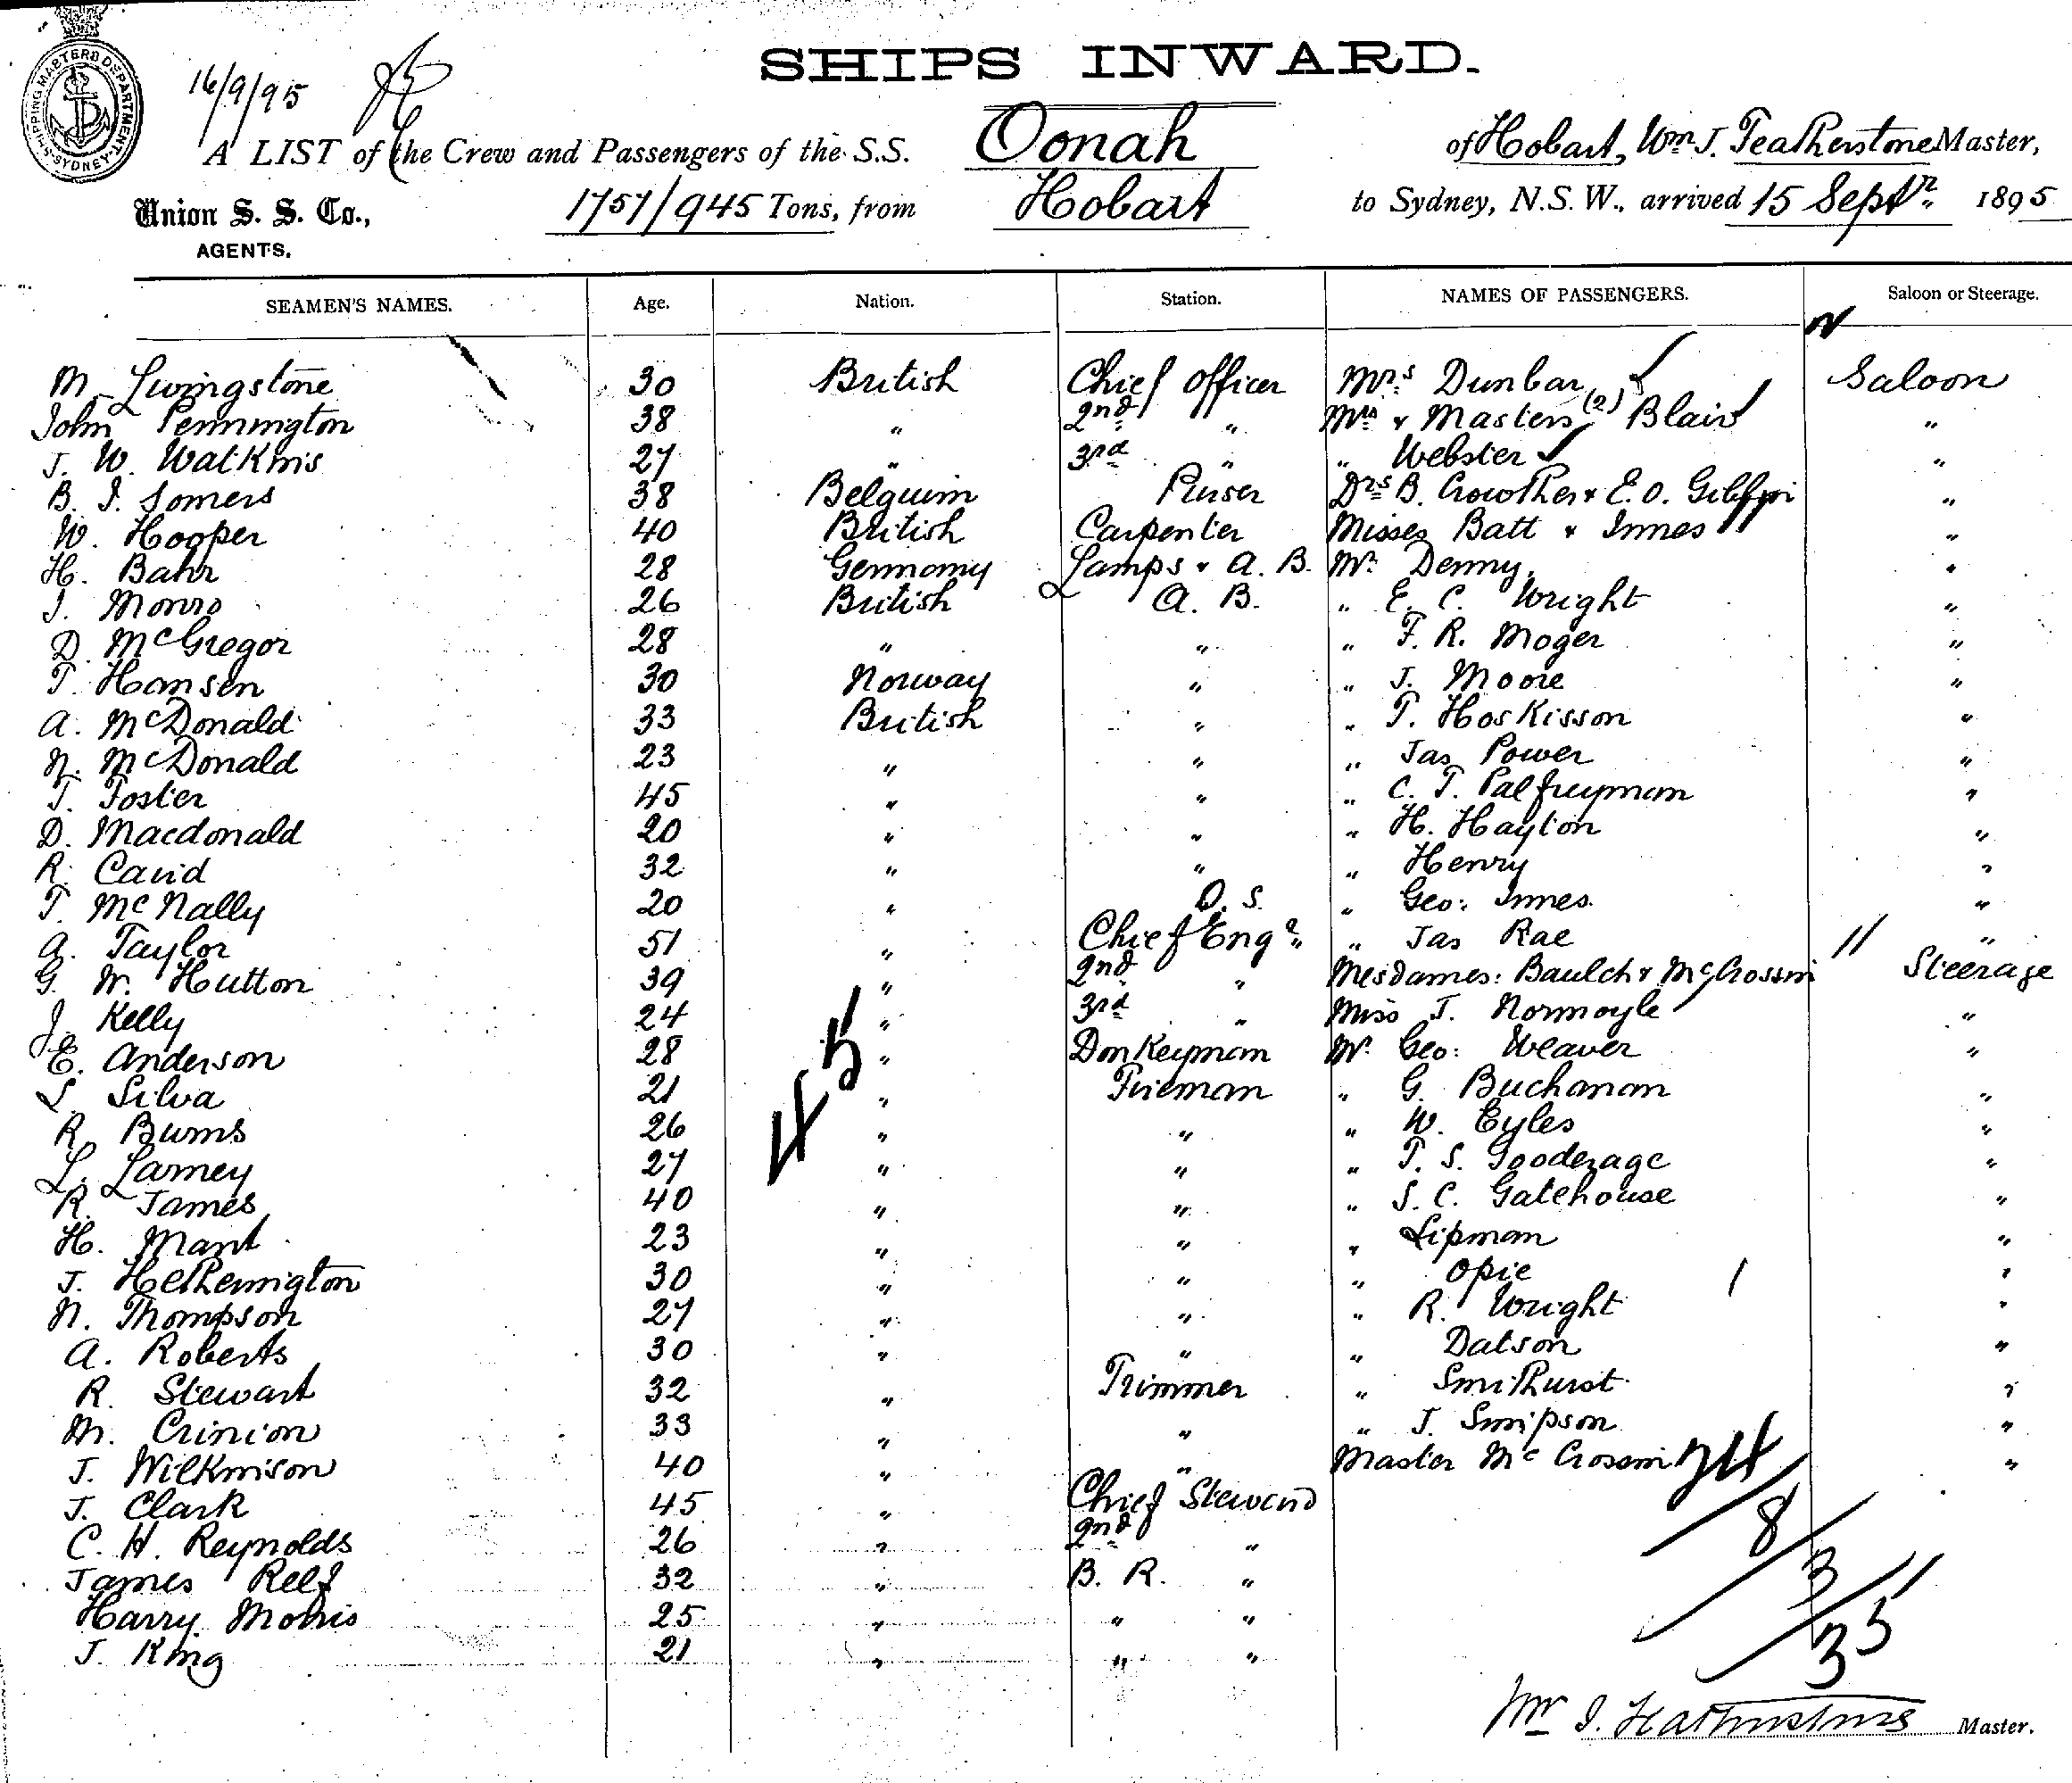 SHIPPING MASTERS DEPARTMENT SYDNEY
16/9/95
SHIPS INWARD.
A LIST of the Crew and Passengers of the S.S. Oonah of Hobart, Wm J. Featherstone Master,
Union S. S. Co., AGENTS. 1757/945 Tons, from Hobart to Sydney, N.S.W., arrived 15 Septr. 1895
SEAMEN'S NAMES. Age. Nation. Station. NAMES OF PASSENGERS. Saloon or Steerage.
M. Livingstone 30 British Chief Officer Mrs Dunbar Saloon
John Pennington 38 " 2nd " Mrs & Masters (2) Blair "
J. W. Watkins 27 " 3rd " " Webster "
B. J. Somers 38 Belguim Purser Drs B. Crowther & E. O. "
W. Hooper 40 British Carpenter Misses Batt & Innes "
H. Bahr 28 Germany Lamps & A. B. Mr. Denny "
J. Monro 26 British A. B. " E. C. Wright "
D. McGregor 28 " " " F. R. Moger "
T. Hansen 30 Norway " " J. Moore "
A. McDonald 33 British " " T. Hoskisson "
N. McDonald 23 " " " Jas Power "
T. Foster 45 " " " C. T. Palfreyman "
D. Macdonald 20 " " " H. Hayton "
R. Cavid 32 " " " Henry "
T. McNally 20 " O. S. " Geo: Innes "
A. Taylor 51 " Chief Engr. " Jas Rae "
G. W. Hutton 39 " 2nd " Mesdames: Baulch & McCrossin Steerage
J. Kelly 24 " 3rd " Miss J. Normoyle "
E. Anderson 28 " Donkeyman Mr. Geo: Weaver "
S. Silva 21 " Fireman " G. Buchanan "
R. Burns 26 " " " W. Eyles "
L. Larney 27 " " " T. S. Gooderage "
R. James 40 " " " S. C. Gatehouse "
H. Mant 23 " " " Lipman "
J. Hetherington 30 " " " Opie "
N. Thompson 27 " " " R. Wright "
A. Roberts 30 " " " Datson "
R. Stewart 32 " Trimmer " Smithurst "
M. Crinion 33 " " " J. Simpson "
J. Wilkinson 40 " " Master McCrossin "
J. Clark 45 " Chief Steward
C. H. Reynolds 26 " 2nd "
James Relf 32 " B. R. "
Harry Morris 25 " " "
J. King 21 " " "
45
24
8
3
35
Wm J. Featherstone Master.